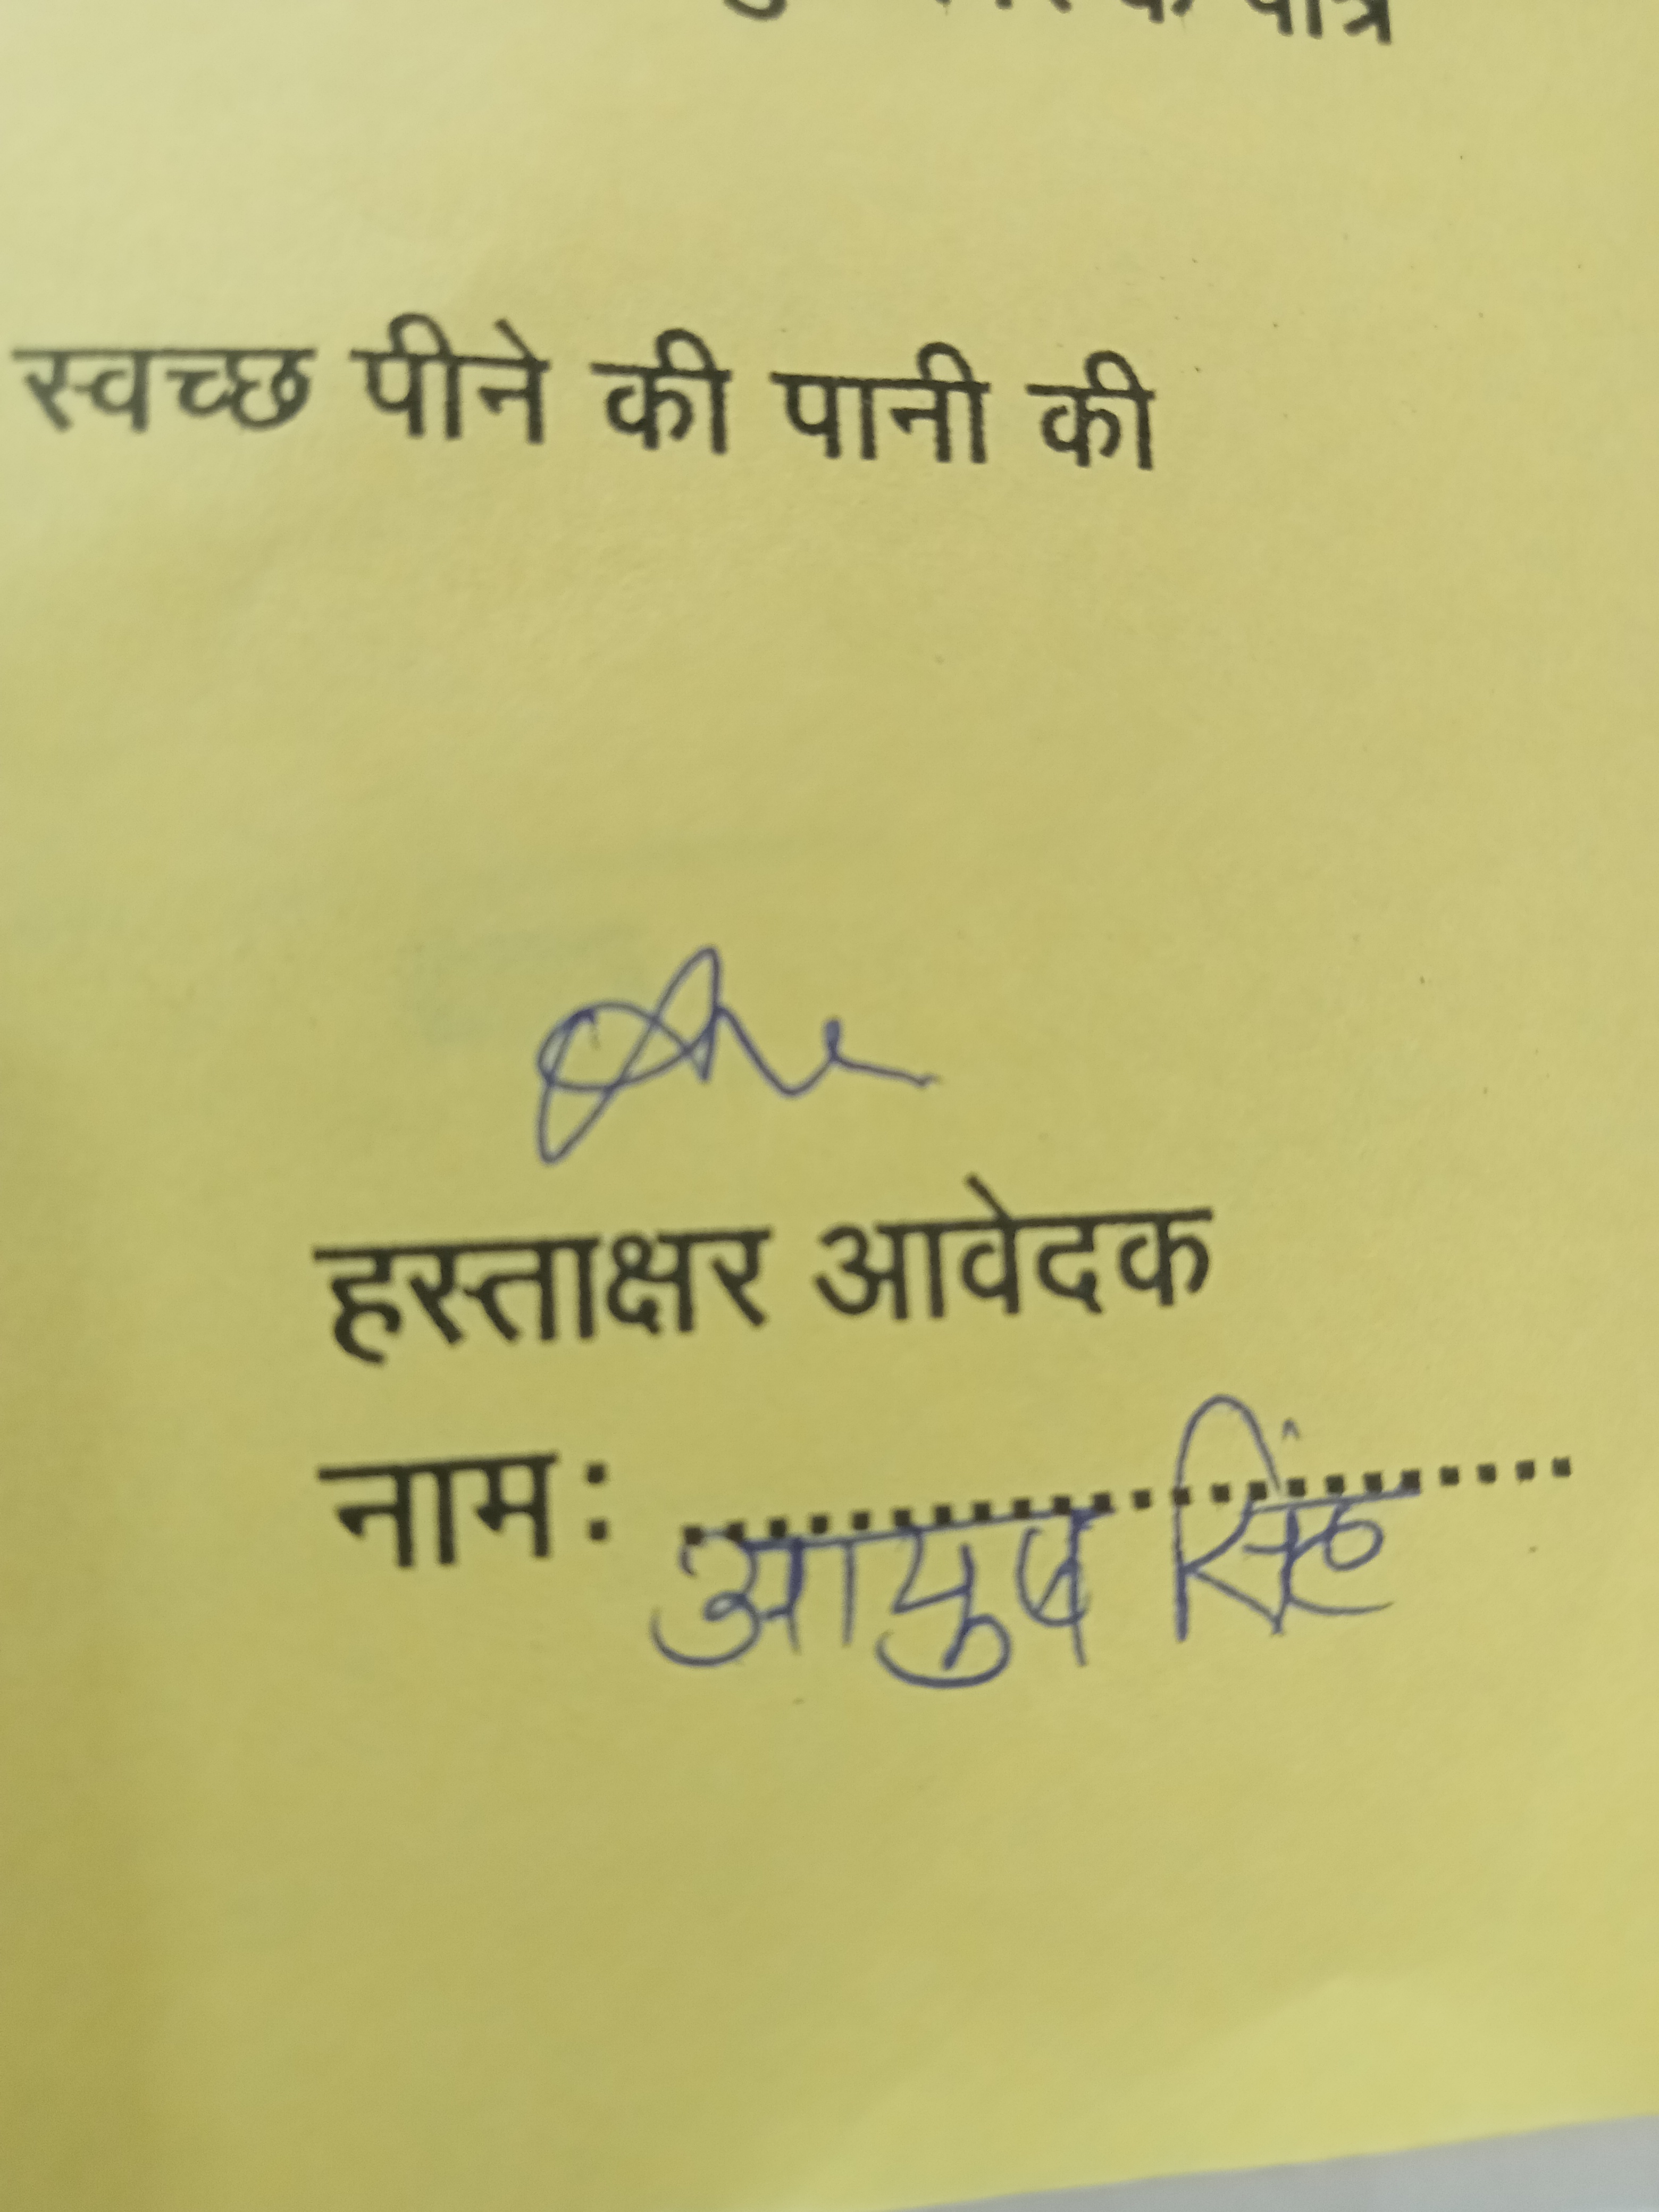 के पात्र
स्वच्छ पीने की पानी की
हस्ताक्षर आवेदक
नाम : ....................... आयुष सिंह